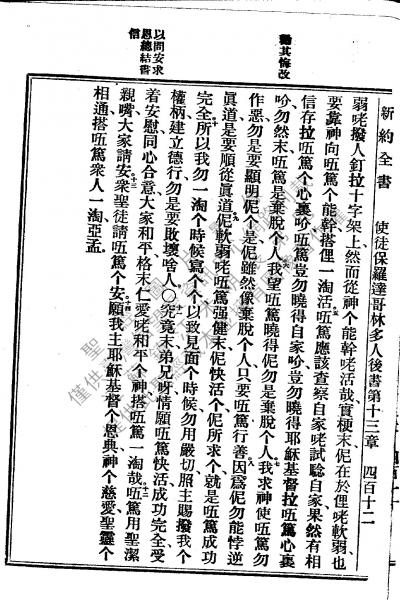 新約全書 使徒保羅達哥林多人後書第十三章 四百十二
勸其悔改
弱咾撥人釘拉十字架上、然而從神个能幹咾活哉、實梗末伲在於俚咾軟弱、也
要靠神向㕶篤个能幹搭俚一淘活、㕶篤應該查察自家咾試騐自家、果然有相
信存拉㕶篤个心裏吤、㕶篤豈勿曉得自家吤、豈勿曉得耶穌基督拉㕶篤心裏
吤、勿然末㕶篤是棄脫个人、我望㕶篤曉得伲勿是棄脫个人、我求神使㕶篤勿
作惡、勿是要顯明伲个是、伲雖然像棄脫个人、只要㕶篤行善、因爲伲勿能悖逆
眞道、是要順從眞道、伲軟弱咾㕶篤强健末、伲快活个、伲所求个、就是㕶篤成功
完全、所以我勿一淘个時候、寫个个、以致見面个時候、勿用嚴切、照主賜撥我个
權柄、建立德行、勿是要敗壞啥人、〇究竟末、弟兄呀、情願㕶篤快活、成功完全、受
以問安求恩總結書信
着安慰、同心合意、大家和平、格末仁愛咾和平个神、搭㕶篤一淘哉、㕶篤用聖潔
親嘴、大家請安、衆聖徒請㕶篤个安、願我主耶穌基督个恩典、神个慈愛、聖靈个
相通、搭㕶篤衆人一淘、亞孟、